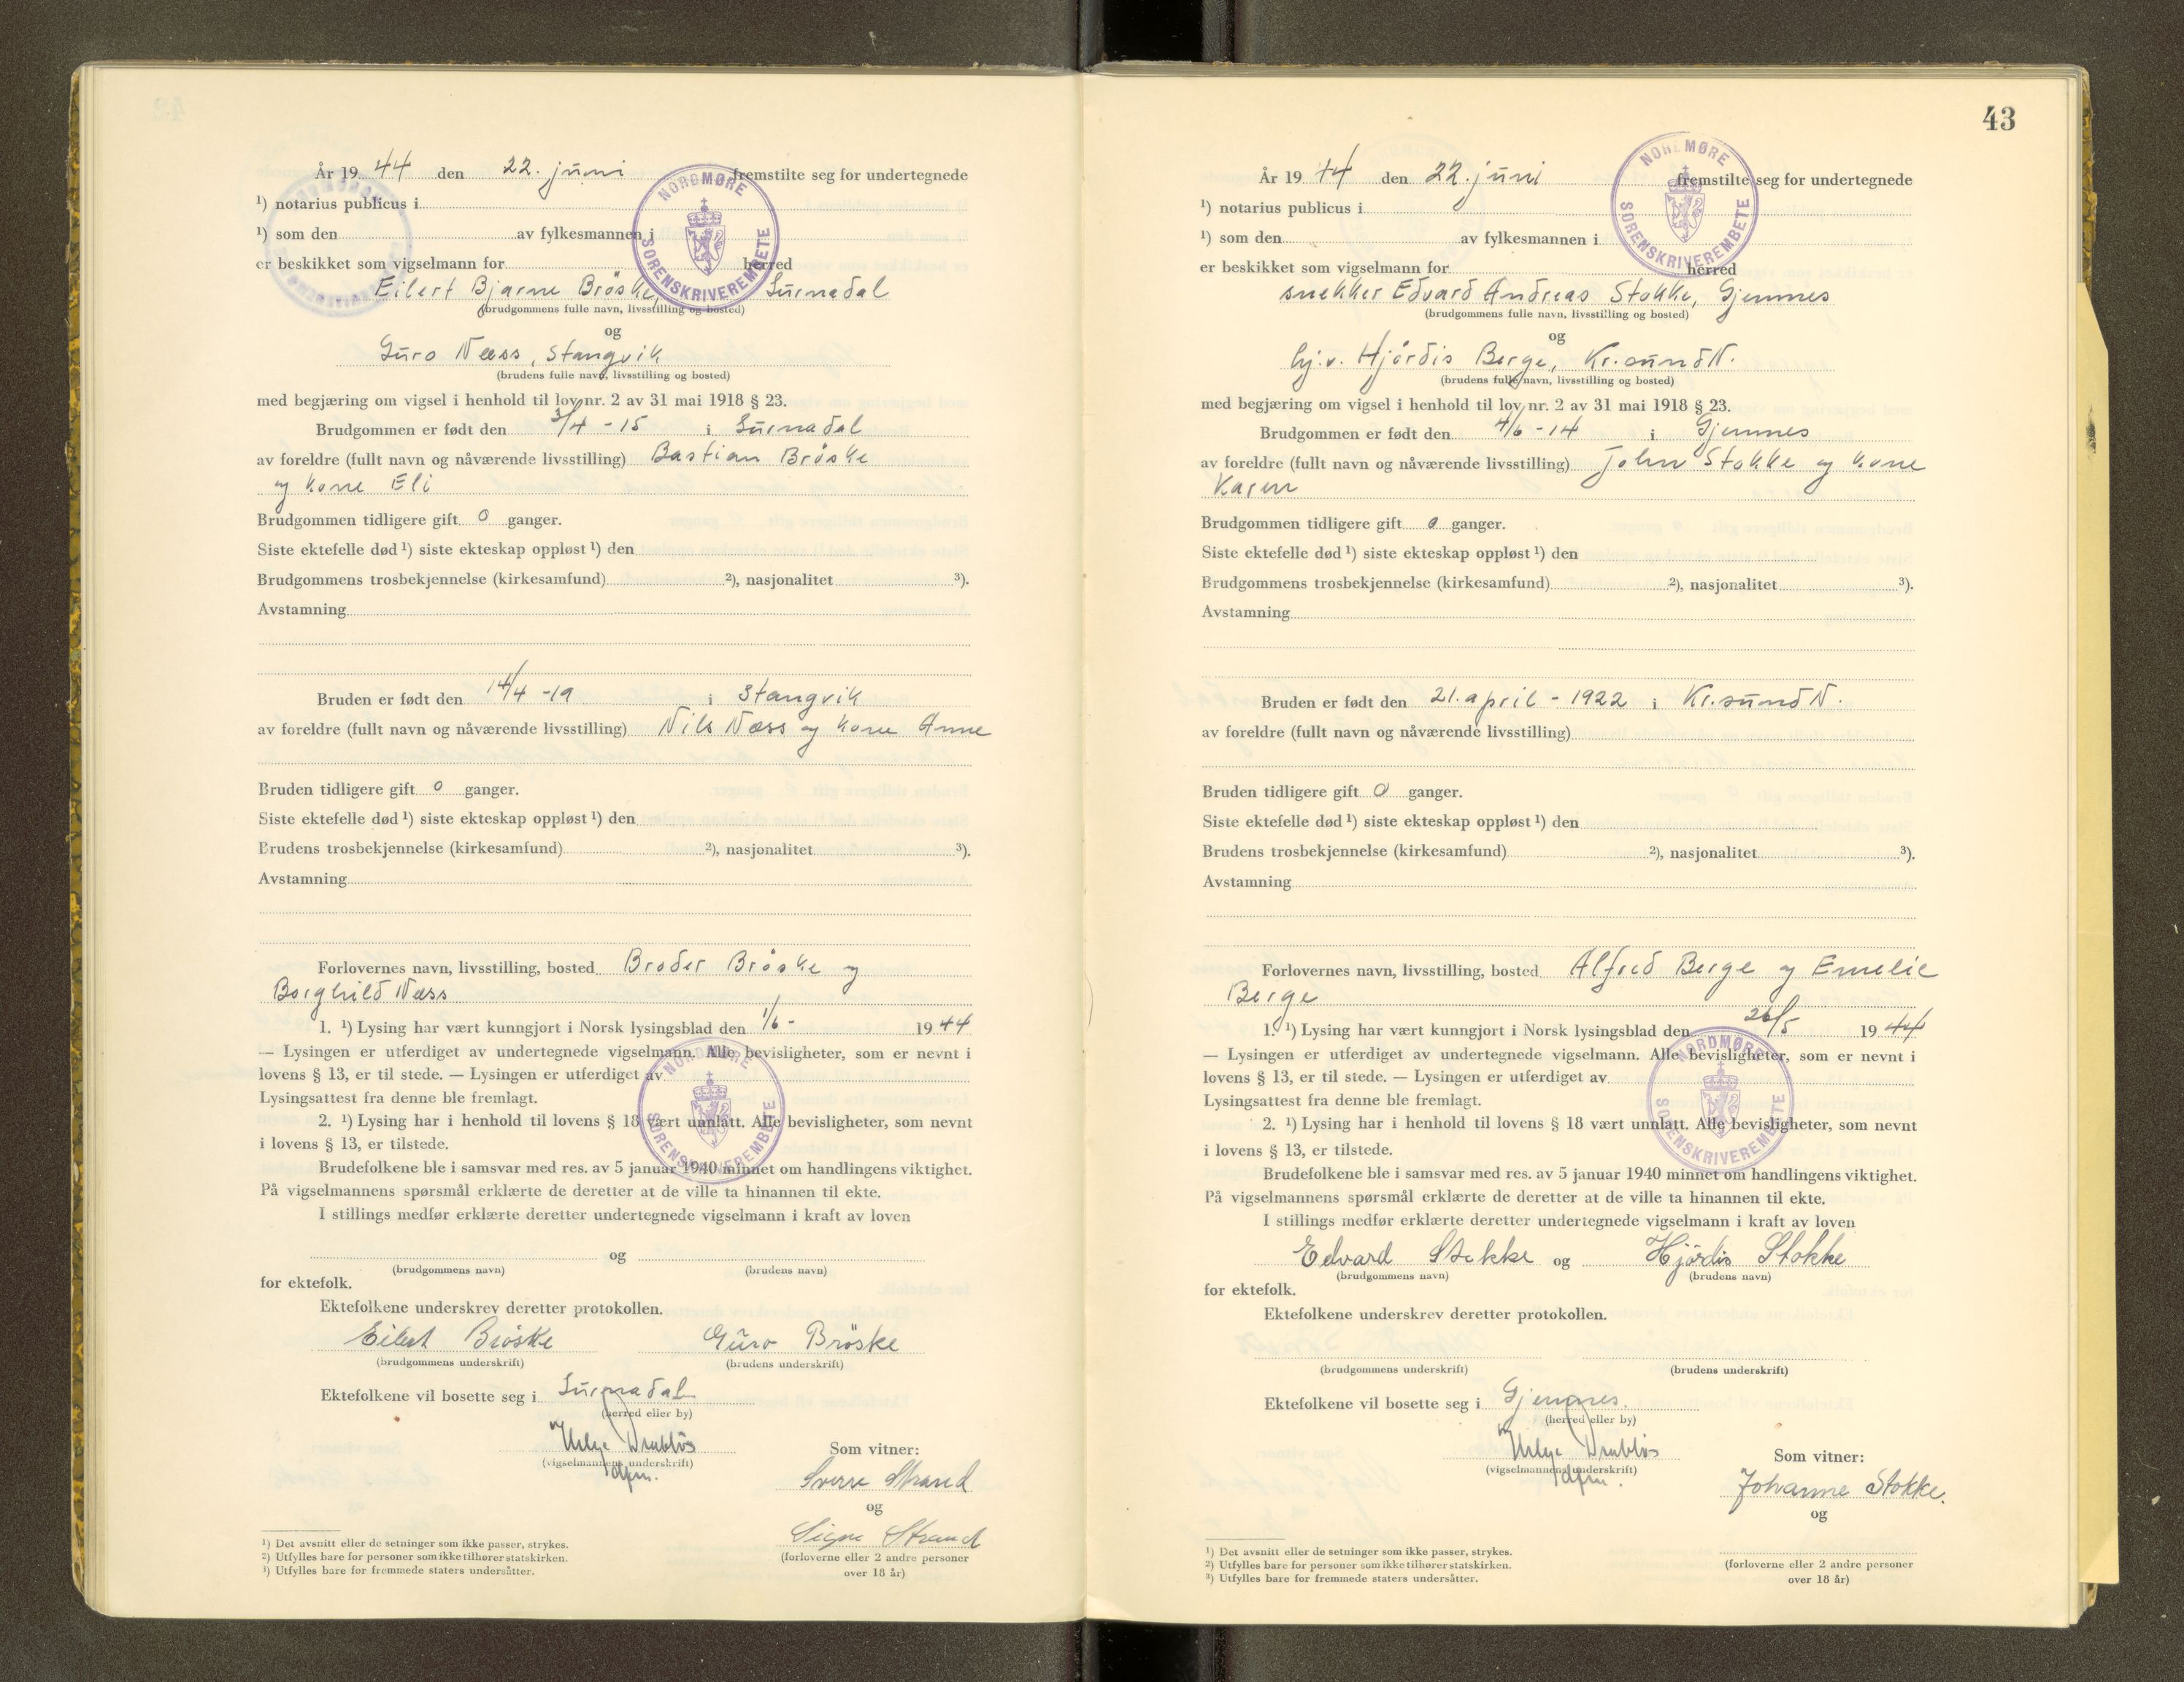 År 19 44 den 22. juni fremstilte seg for undertegnede
¹) notarius publicus i
¹) som den av fylkesmannen i
er beskikket som vigselmann for herred
NORDMØRE SORENSKRIVEREMBETE
Eilert Bjarne Bröske, Surnadal
(brudgommens fulle navn, livsstilling og bosted)
og
Guro Næss, Stangvik
(brudens fulle navn, livsstilling og bosted)
med begjæring om vigsel i henhold til lov nr. 2 av 31 mai 1918 § 23.
Brudgommen er født den 3/4 - 15 i Surnadal
av foreldre (fullt navn og nåværende livsstilling) Bastian Bröske
og kone Eli
Brudgommen tidligere gift 0 ganger.
Siste ektefelle død ¹) siste ekteskap oppløst ¹) den
Brudgommens trosbekjennelse (kirkesamfund) ²), nasjonalitet ³).
Avstamning
Bruden er født den 14/4 -19 i Stangvik
av foreldre (fullt navn og nåværende livsstilling) Nils Næss og kone Anne
Bruden tidligere gift 0 ganger.
Siste ektefelle død ¹) siste ekteskap oppløst ¹) den
Brudens trosbekjennelse (kirkesamfund) ²), nasjonalitet ³).
Avstamning
Forlovernes navn, livsstilling, bosted Broder Bröske og
Borghild Næss
1. ¹) Lysing har vært kunngjort i Norsk lysingsblad den 1/6 - 19 44
— Lysingen er utferdiget av undertegnede vigselmann. Alle bevisligheter, som er nevnt i
lovens § 13, er til stede. — Lysingen er utferdiget av
Lysingsattest fra denne ble fremlagt.
2. ¹) Lysing har i henhold til lovens § 18 vært unnlatt. Alle bevisligheter, som nevnt
i lovens § 13, er tilstede.
NORDMØRE SORENSKRIVEREMBETE
Brudefolkene ble i samsvar med res. av 5 januar 1940 minnet om handlingens viktighet.
På vigselmannens spørsmål erklærte de deretter at de ville ta hinannen til ekte.
I stillings medfør erklærte deretter undertegnede vigselmann i kraft av loven
og
(brudgommens navn) (brudens navn)
for ektefolk.
Ektefolkene underskrev deretter protokollen.
Eilert Bröske Guro Bröske
(brudgommens underskrift) (brudens underskrift)
Ektefolkene vil bosette seg i Surnadal
(herred eller by)
Helge Drabløs
(vigselmannens underskrift)
dfm.
Som vitner:
Sverre Strand
og
Signe Strand
(forloverne eller 2 andre personer
over 18 år)
¹) Det avsnitt eller de setninger som ikke passer, strykes.
²) Utfylles bare for personer som ikke tilhører statskirken.
³) Utfylles bare for fremmede staters undersåtter.
43
År 19 44 den 22. juni fremstilte seg for undertegnede
¹) notarius publicus i
¹) som den av fylkesmannen i
er beskikket som vigselmann for herred
NORDMØRE SORENSKRIVEREMBETE
snekker Edvard Andreas Stokke, Gjemnes
(brudgommens fulle navn, livsstilling og bosted)
og
hj.v. Hjördis Berge, Kr.sund N.
(brudens fulle navn, livsstilling og bosted)
med begjæring om vigsel i henhold til lov nr. 2 av 31 mai 1918 § 23.
Brudgommen er født den 4/6 - 14 i Gjemnes
av foreldre (fullt navn og nåværende livsstilling) John Stokke og kone
Karen
Brudgommen tidligere gift 0 ganger.
Siste ektefelle død ¹) siste ekteskap oppløst ¹) den
Brudgommens trosbekjennelse (kirkesamfund) ²), nasjonalitet ³).
Avstamning
Bruden er født den 21. april - 1922 i Kr.sund N.
av foreldre (fullt navn og nåværende livsstilling)
Bruden tidligere gift 0 ganger.
Siste ektefelle død ¹) siste ekteskap oppløst ¹) den
Brudens trosbekjennelse (kirkesamfund) ²), nasjonalitet ³).
Avstamning
Forlovernes navn, livsstilling, bosted Alfred Berge og Emelie
Berge
1. ¹) Lysing har vært kunngjort i Norsk lysingsblad den 26/5 19 44
— Lysingen er utferdiget av undertegnede vigselmann. Alle bevisligheter, som er nevnt i
lovens § 13, er til stede. — Lysingen er utferdiget av
Lysingsattest fra denne ble fremlagt.
2. ¹) Lysing har i henhold til lovens § 18 vært unnlatt. Alle bevisligheter, som nevnt
i lovens § 13, er tilstede.
NORDMØRE SORENSKRIVEREMBETE
Brudefolkene ble i samsvar med res. av 5 januar 1940 minnet om handlingens viktighet.
På vigselmannens spørsmål erklærte de deretter at de ville ta hinannen til ekte.
I stillings medfør erklærte deretter undertegnede vigselmann i kraft av loven
Edvard Stokke og Hjördis Stokke
(brudgommens navn) (brudens navn)
for ektefolk.
Ektefolkene underskrev deretter protokollen.
(brudgommens underskrift) (brudens underskrift)
Ektefolkene vil bosette seg i Gjemnes.
(herred eller by)
Helge Drabløs
(vigselmannens underskrift)
dfm.
Som vitner:
Johanne Stokke.
og
(forloverne eller 2 andre personer
over 18 år)
¹) Det avsnitt eller de setninger som ikke passer, strykes.
²) Utfylles bare for personer som ikke tilhører statskirken.
³) Utfylles bare for fremmede staters undersåtter.